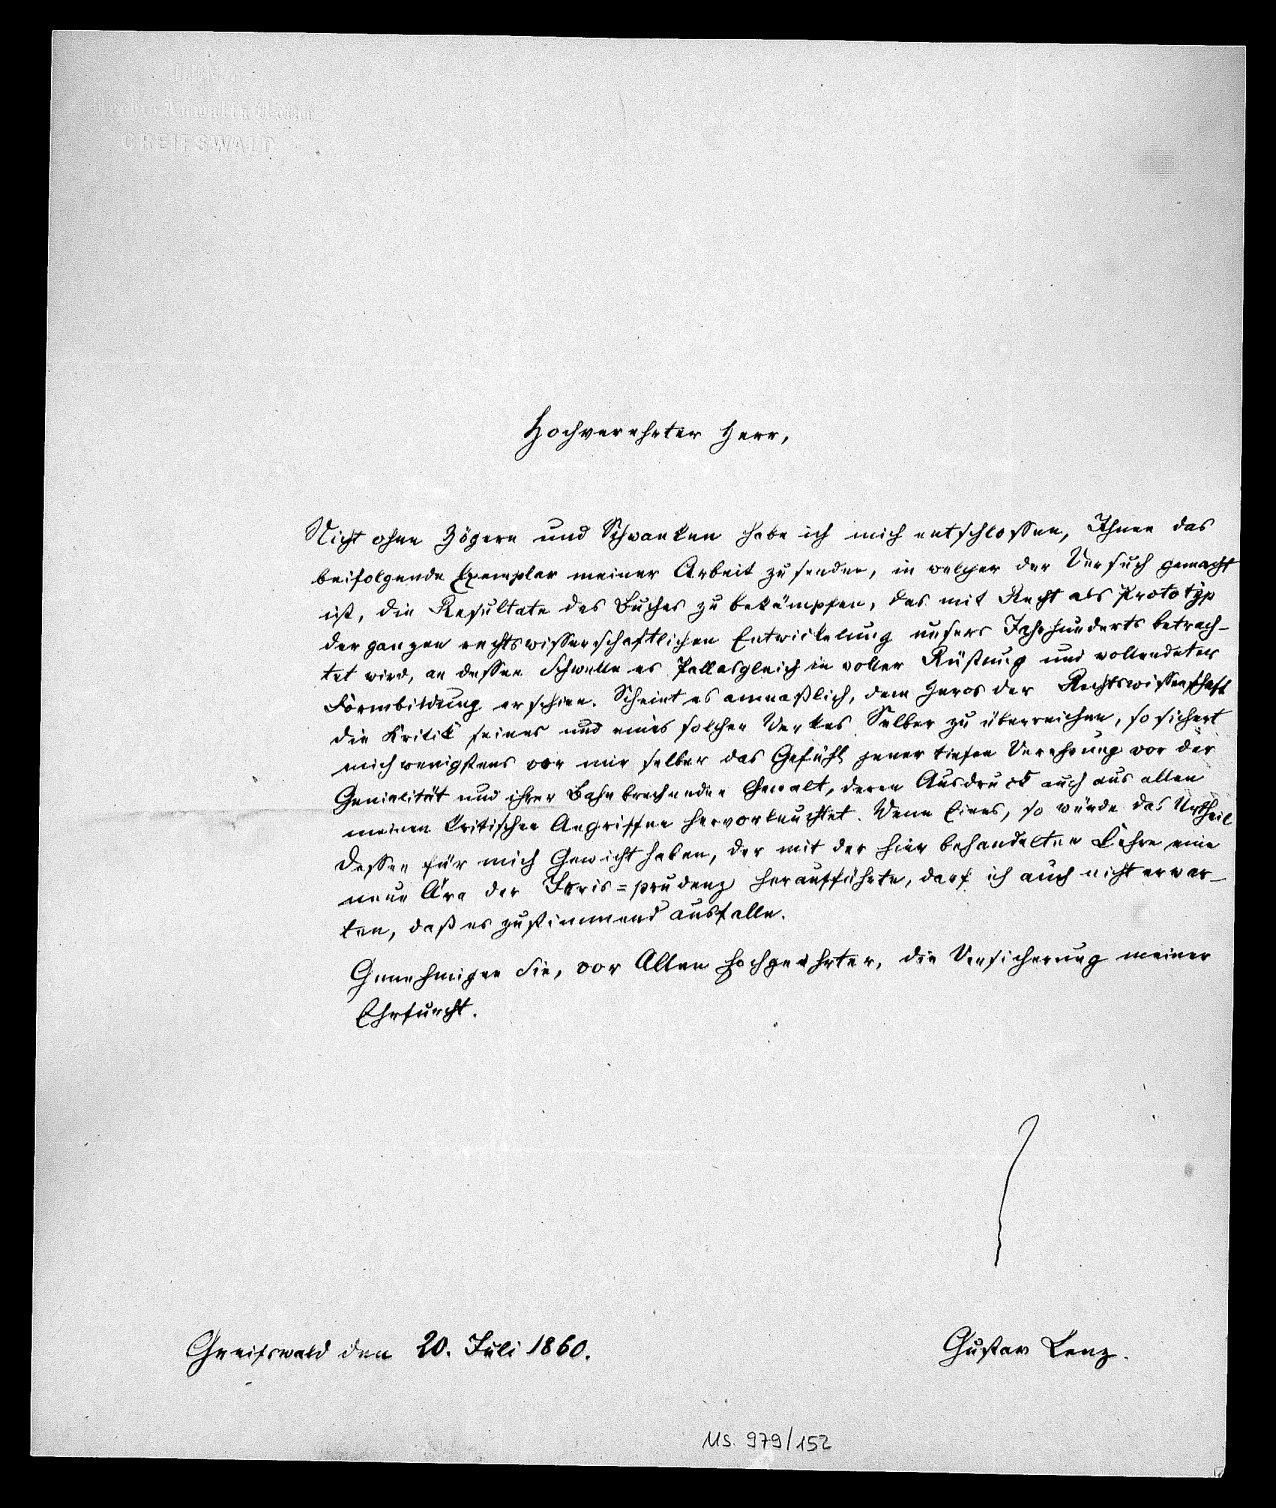 GREIFSWALD
Hochverehrter Herr,
Nicht ohne Zögern und Schwanken habe ich mich entschlossen, Ihnen das
beifolgende Exemplar meiner Arbeit zu senden, in welcher der Versuch gemacht
ist, die Resultate des Buches zu bekämpfen, das mit Recht als Prototÿp
der ganzen rechtswissenschaftlichen Entwickelung unsers Jahrhunderts betrach-
tet wird, an dessen Schwelle es Pallasgleich in voller Rüstung und vollendeter
Formbildung erschien. Scheint es anmaßlich, dem Heros der Rechtswissenschaft
die Kritik seines und eines solchen Werkes Selber zu überreichen, so sichert
mich wenigstens vor mir selber das Gefühl jener tiefen Verehrung vor der
Genialität und ihrer Bahn brechenden Gewalt, deren Ausdruck auch aus allen
meinen kritischen Angriffen hervorleuchtet. Wenn Eines, so würde das Urtheil
Dessen für mich Gewicht haben, der mit der hier behandelten Lehre eine
neue Ära der Juris=prudenz heraufführte, darf ich auch nicht erwar-
ten, daß es zustimmend ausfalle.
Genehmigen Sie, vor Allen Hochgeehrter, die Versicherung meiner
Ehrfurcht.
Greifswald den 20. Juli 1860.
Gustav Lenz.
Ms. 979/152